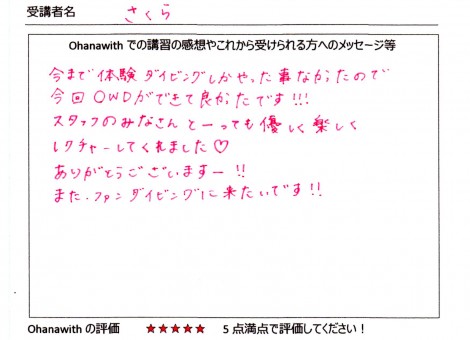 受講者名 さくら
Ohanawith での講習の感想やこれから受けられる方へのメッセージ等
今まで体験ダイビングしかやった事なかったので
今回OWDができて良かったです!!!
スタッフのみなさんとーっても優しく楽しく
レクチャーしてくれました♡
ありがとうございますー!!
また、ファンダイビングに来たいです!!
Ohanawith の評価 ★★★★★ 5点満点で評価してください！